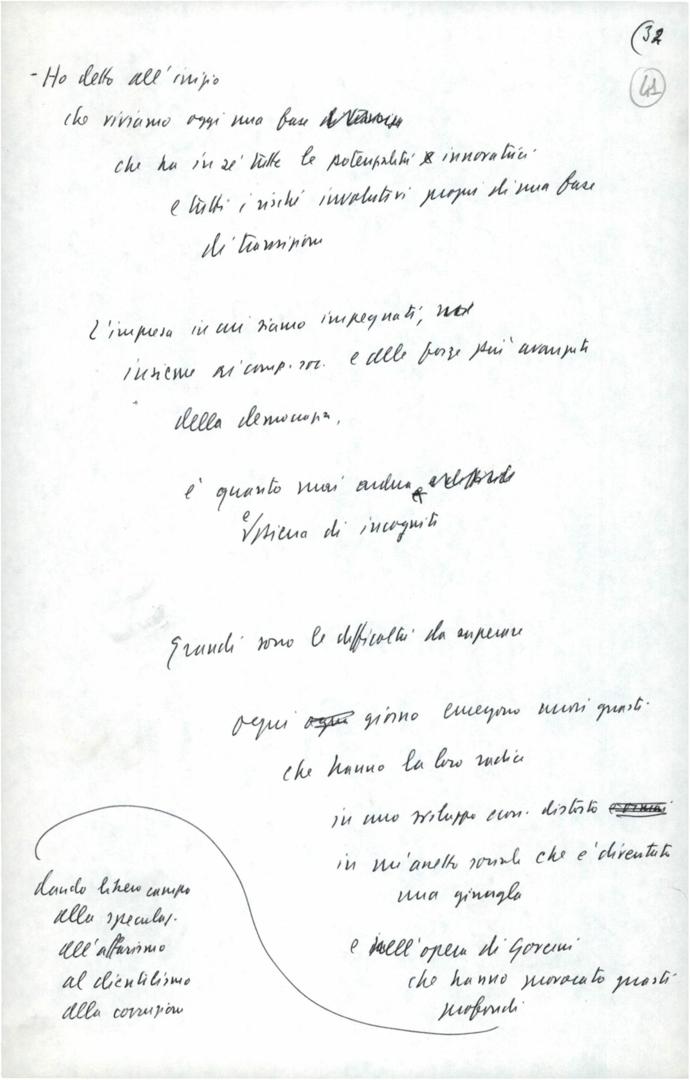 (32
41
- Ho detto all'inizio
che viviamo oggi una fase
che ha in sé tutte le potenzialità innovatrici
e tutti i rischi involutivi propri di una fase
di transizione
L'impresa in cui siamo impegnati,
insieme ai comp. soc. e alle forze più avanzate
della democrazia,
è quanto mai ardua
e piena di incognite
Grandi sono le difficoltà da superare
ogni giorno emergono nuovi guasti
che hanno la loro radice
in uno sviluppo econ. distorto
in un'assetto sociale che è diventato
una giungla
e nell'opera di Governi
che hanno provocato guasti
profondi
dando libero campo
alla speculaz.
all'affarismo
al clientelismo
alla corruzione